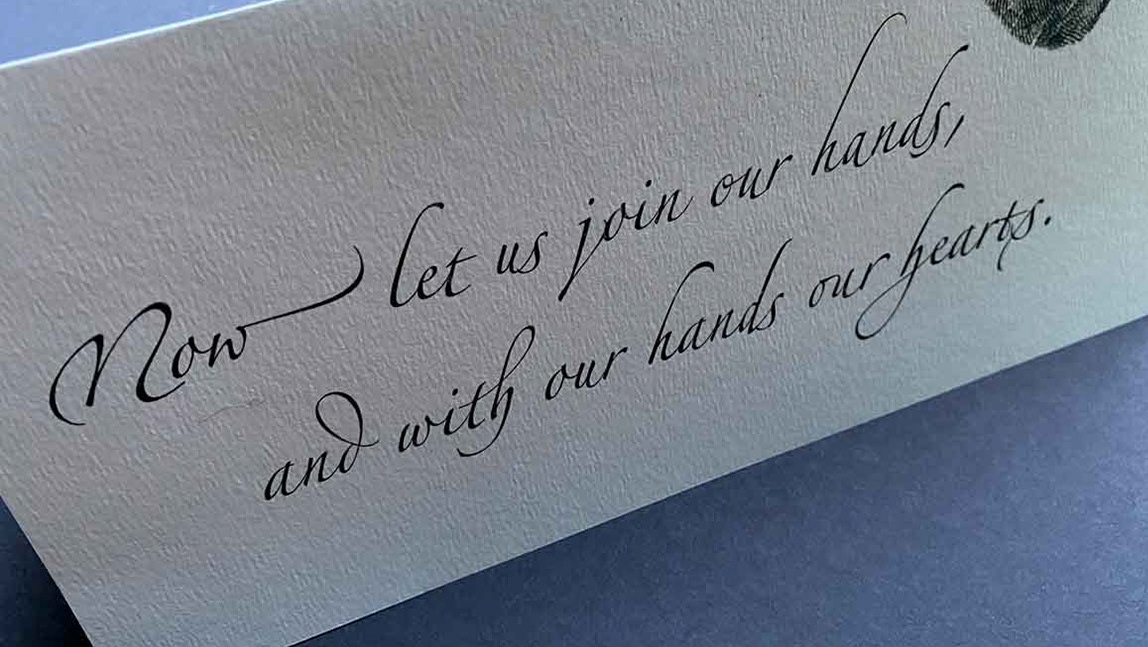 Now let us join our hands,
and with our hands our hearts.